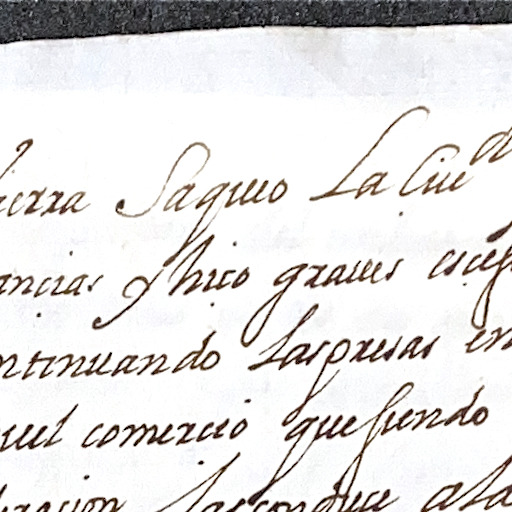 ierra Saqueo La Ciud
ancias y hiço graues esces
ntinuando las presas en
quel comercio que siendo
racion las conduce a la